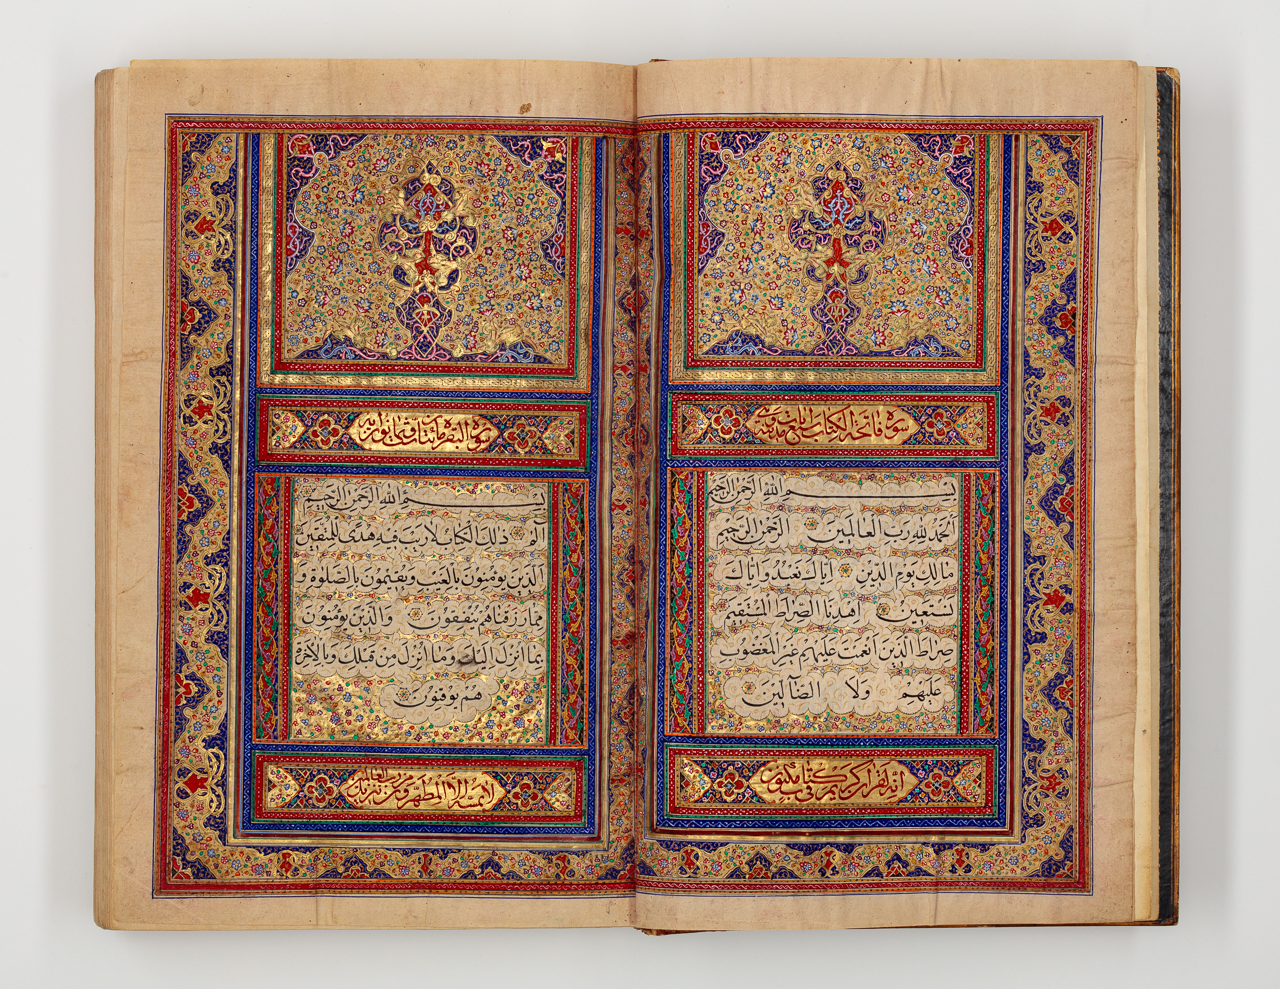 سورة فاتحة الكتاب سبع
بِسْمِ اللهِ الرَّحْمنِ الرَّحيمِ
اَلْحَمْدُ لِلّهِ رَبِّ الْعالَمينَ الرَّحْمنِ الرَّحيمِ
مالِكِ يَوْمِ الدّينِ اِيّاكَ نَعْبُدُ وَاِيّاكَ
نَسْتَعينُ اِهْدِنَا الصِّراطَ الْمُسْتَقيمَ
صِراطَ الَّذينَ اَنْعَمْتَ عَلَيْهِمْ غَيْرِ الْمَغْضُوبِ
عَلَيْهِمْ وَلَا الضّآلّينَ
انه لقرآن كريم في كتاب مكنون
سورة البقرة مائتان و
بِسْمِ اللهِ الرَّحْمنِ الرَّحيمِ
الم ذلِكَ الْكِتابُ لا رَيْبَ فيهِ هُدًى لِلْمُتَّقينَ
اَلَّذينَ يُؤْمِنُونَ بِالْغَيْبِ وَيُقيمُونَ بِالصَّلوةَ وَ
مِمّا رَزَقْناهُمْ يُنْفِقُونَ وَالَّذينَ يُؤْمِنُونَ
بِما اُنْزِلَ اِلَيْكَ وَما اُنْزِلَ مِنْ قَبْلِكَ وَبِالْاخِرَةِ
هُمْ يُوقِنُونَ
لا يمسه الا المطهرون تنزيل من رب العالمين